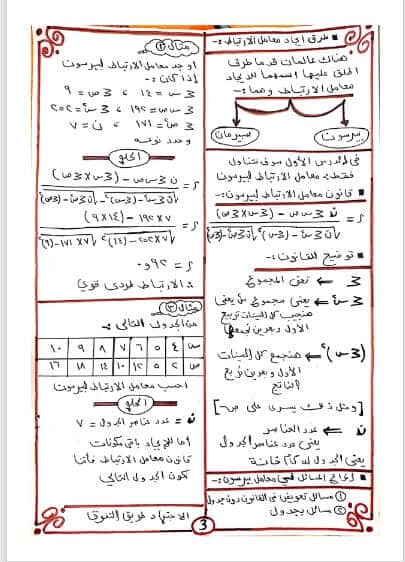 طرق ايجاد معامل الارتباط :-
هناك عالمان قدما طرق
اطلق عليها اسمهما لايجاد
معامل الارتباط وهما :-
بيرسون سبيرمان
في الدرس الأول سوف نتناول
فقط: معامل الارتباط لبيرسون
قانون معامل الارتباط لبيرسون :-
ر = ن مجـ س ص - (مجـ س × مجـ ص) / √ن مجـ س² - (مجـ س)² √ن مجـ ص² - (مجـ ص)²
توضيح القانون :-
مجـ ← تعنى المجموع
مجـ س² ← يعنى مجموع س² يعنى
هنجيب كل السينات تربيع
الأول وبعدين نجمعها
(مجـ س)² ← هنجمع كل السينات
الأول وبعدين تربيع
الناتج
[ومثل ذلك يسرى على ص]
ن ← عدد العناصر
يعنى عدد عناصر الجدول
يعنى الجدول له كام خانة
أنواع المسائل في معامل بيرسون :-
① مسائل تعويض في القانون دون جدول
② مسائل بجدول
مثال ①
اوجد معامل الارتباط لبيرسون
إذا كان :-
مجـ س = ١٤ ، مجـ ص = ٩
مجـ س ص = ١٩٢ ، مجـ س² = ٢٠٢
مجـ ص² = ١٧١ ، ن = ٧
وحدد نوعه
الحلو
ر = ن مجـ س ص - (مجـ س × مجـ ص) / √ن مجـ س² - (مجـ س)² √ن مجـ ص² - (مجـ ص)²
ر = ٧ × ١٩٢ - (١٤ × ٩) / √٧ × ٢٠٢ - (١٤)² √٧ × ١٧١ - (٩)²
ر = ٩٢و٠
∴ الارتباط طردى قوى
مثال ②
من الجدول التالى :-
س ٤ ٥ ٦ ٧ ٨ ٩ ١٠
ص ٢ ٥ ١٢ ١٠ ١٤ ١٨ ١٦
احسب معامل الارتباط لبيرسون
الحلو
ن = عدد عناصر الجدول = ٧
أما لإيجاد باقى مكونات
قانون معامل الارتباط فأننا
نكون الجدول التالى
الاجتهاد طريق التفوق
3